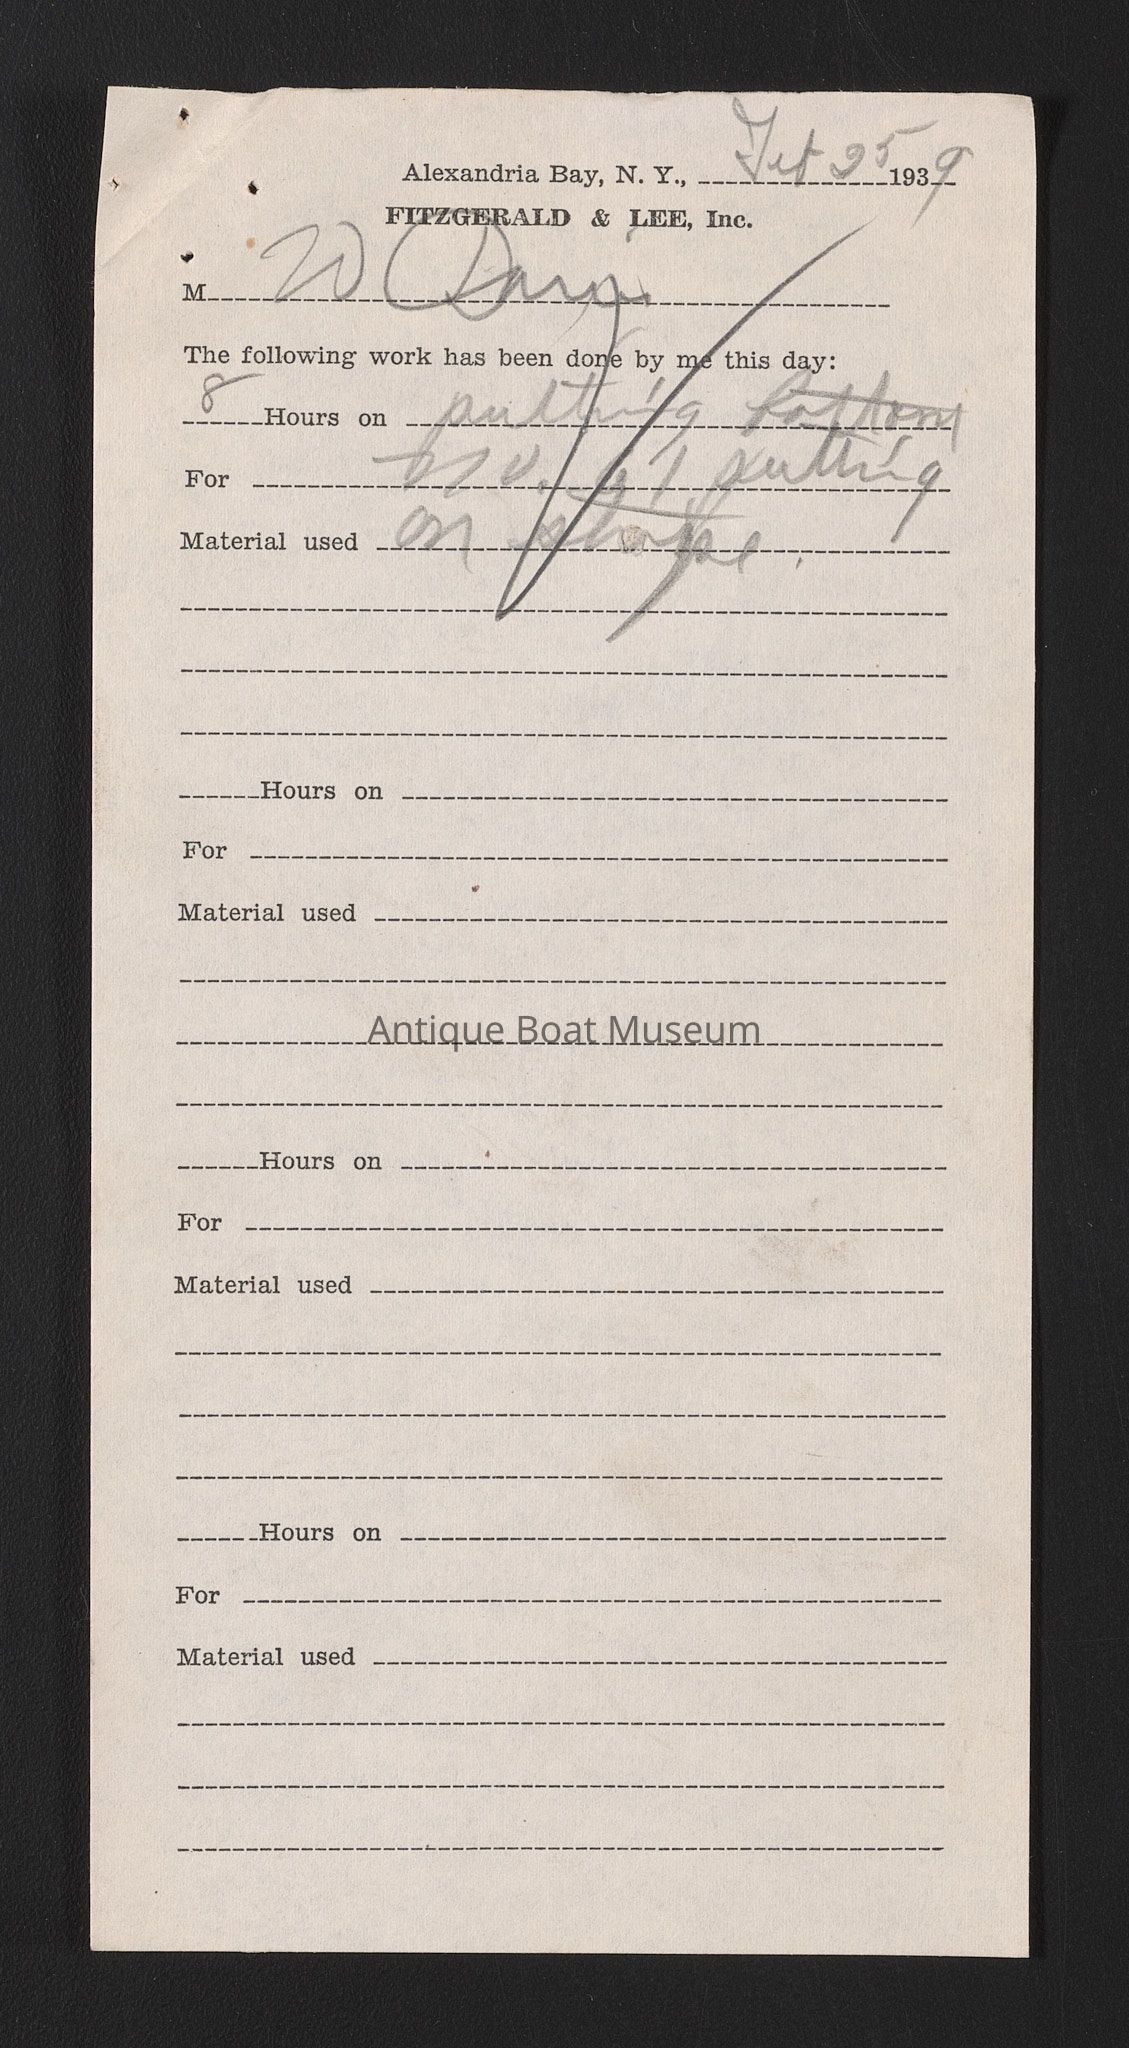 Alexandria Bay, N. Y., Feb 25 1939
FITZGERALD & LEE, Inc.
M W C
The following work has been done by me this day:
8 Hours on putting bottom
For no. putting
Material used on
Hours on
For
Material used
Antique Boat Museum
Hours on
For
Material used
Hours on
For
Material used